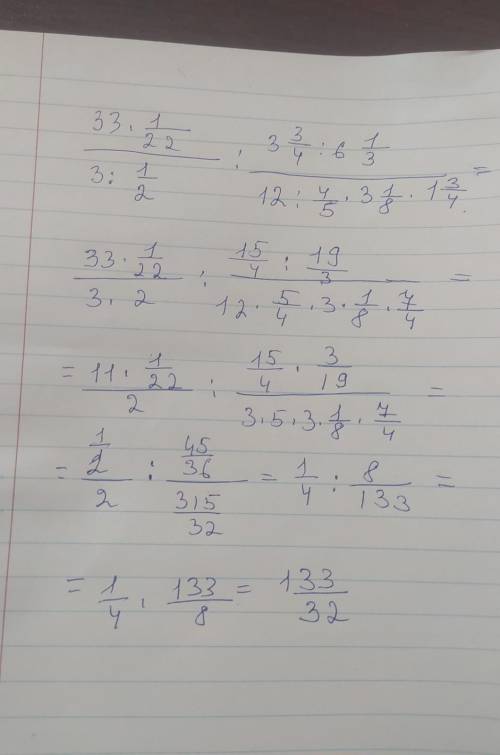 (33 · 1/22)/(3 : 1/2) : (3 3/4 : 6 1/3)/(12 : 4/5 · 3 1/8 · 1 3/4) =
(33 · 1/22)/(3 · 2) : (15/4 : 19/3)/(12 · 5/4 · 3 · 1/8 · 7/4) =
= (11 · 1/22)/2 : (15/4 · 3/19)/(3 · 5 · 3 · 1/8 · 7/4) =
= (1/2)/2 : (45/36)/(315/32) = 1/4 : 8/133 =
= 1/4 · 133/8 = 133/32